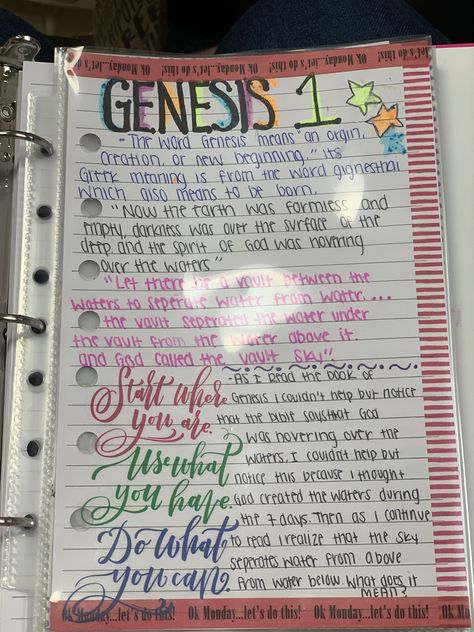 Ok Monday...let's do this!
GENESIS 1
-"The word Genesis means "an orgin,
creation, or new beginning." its
Greek meaning is from the word gignesthai
which also means to be born.
"Now the earth was formless and
empty, darkness was over the surface of the
deep and the spirit of God was hovering
over the waters"
"Let there be a vault between the
waters to seperate water from water....
the vault seperated the water under
the vault from the water above it.
and God called the vault sky"
Start where
you are.
Use what
you have.
Do what
you can.
-As I Read the book of
Genesis I couldn't help but notice
that the bible says that God
was hovering over the
waters. I couldn't help but
notice this because i thought
God created the waters during
the 7 days. Then as I continue
to read I realize that the sky
seperates water from above
from water below. What does it
MEAN?
Ok Monday...let's do this! Ok Monday...let's do this!